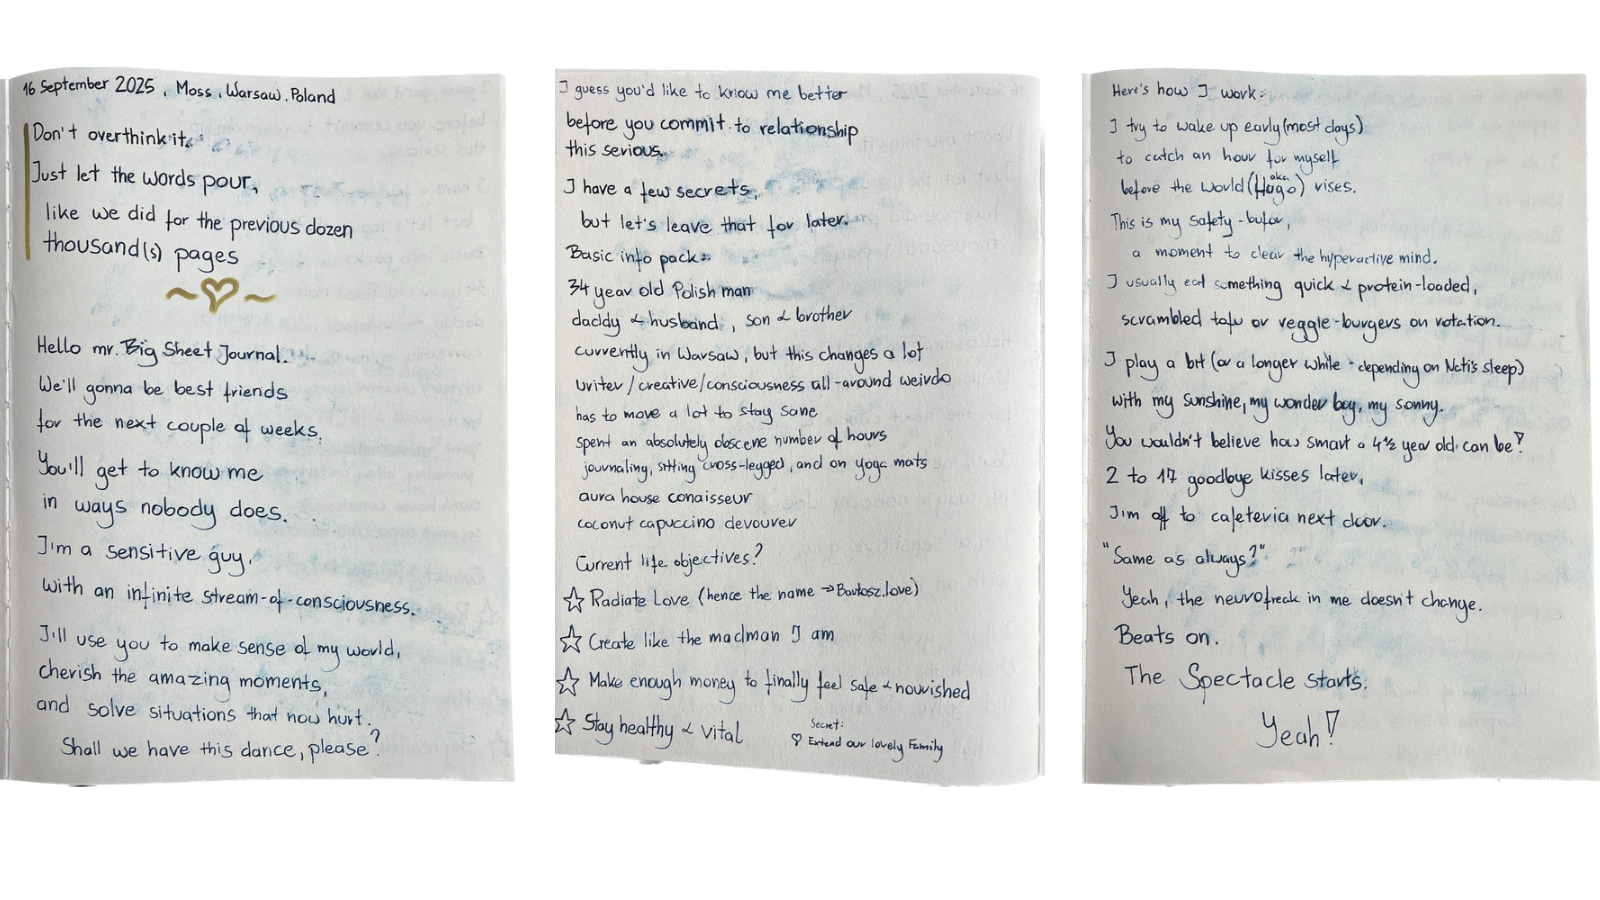 16 September 2025, Moss, Warsaw, Poland
Don't overthink it.
Just let the words pour,
like we did for the previous dozen
thousand(s) pages
Hello mr. Big Sheet Journal.
We'll gonna be best friends
for the next couple of weeks.
You'll get to know me
in ways nobody does.
I'm a sensitive guy,
with an infinite stream-of-consciousness.
I'll use you to make sense of my world,
cherish the amazing moments,
and solve situations that now hurt.
Shall we have this dance, please?
I guess you'd like to know me better
before you commit to relationship
this serious.
I have a few secrets,
but let's leave that for later.
Basic info pack:
34 year old Polish man
daddy & husband, son & brother
currently in Warsaw, but this changes a lot
writer/creative/consciousness all-around weirdo
has to move a lot to stay sane
spent an absolutely obscene number of hours
journaling, sitting cross-legged, and on yoga mats
aura house conaisseur
coconut capuccino devourer
Current life objectives?
☆ Radiate Love (hence the name → Bartosz.love)
☆ Create like the madman I am
☆ Make enough money to finally feel safe & nourished
☆ Stay healthy & vital
Secret:
♡ Extend our lovely Family
Here's how I work:
I try to wake up early (most days)
to catch an hour for myself
before the world (aka Hugo) rises.
This is my safety-bufor,
a moment to clear the hyperactive mind.
I usually eat something quick & protein-loaded,
scrambled tofu or veggie-burgers on rotation.
I play a bit (or a longer while - depending on Nati's sleep)
with my sunshine, my wonder boy, my sonny.
You wouldn't believe how smart a 4½ year old can be!
2 to 17 goodbye kisses later,
I'm off to cafeteria next door.
"Same as always?"
Yeah, the neurofreak in me doesn't change.
Beats on.
The Spectacle starts.
Yeah!